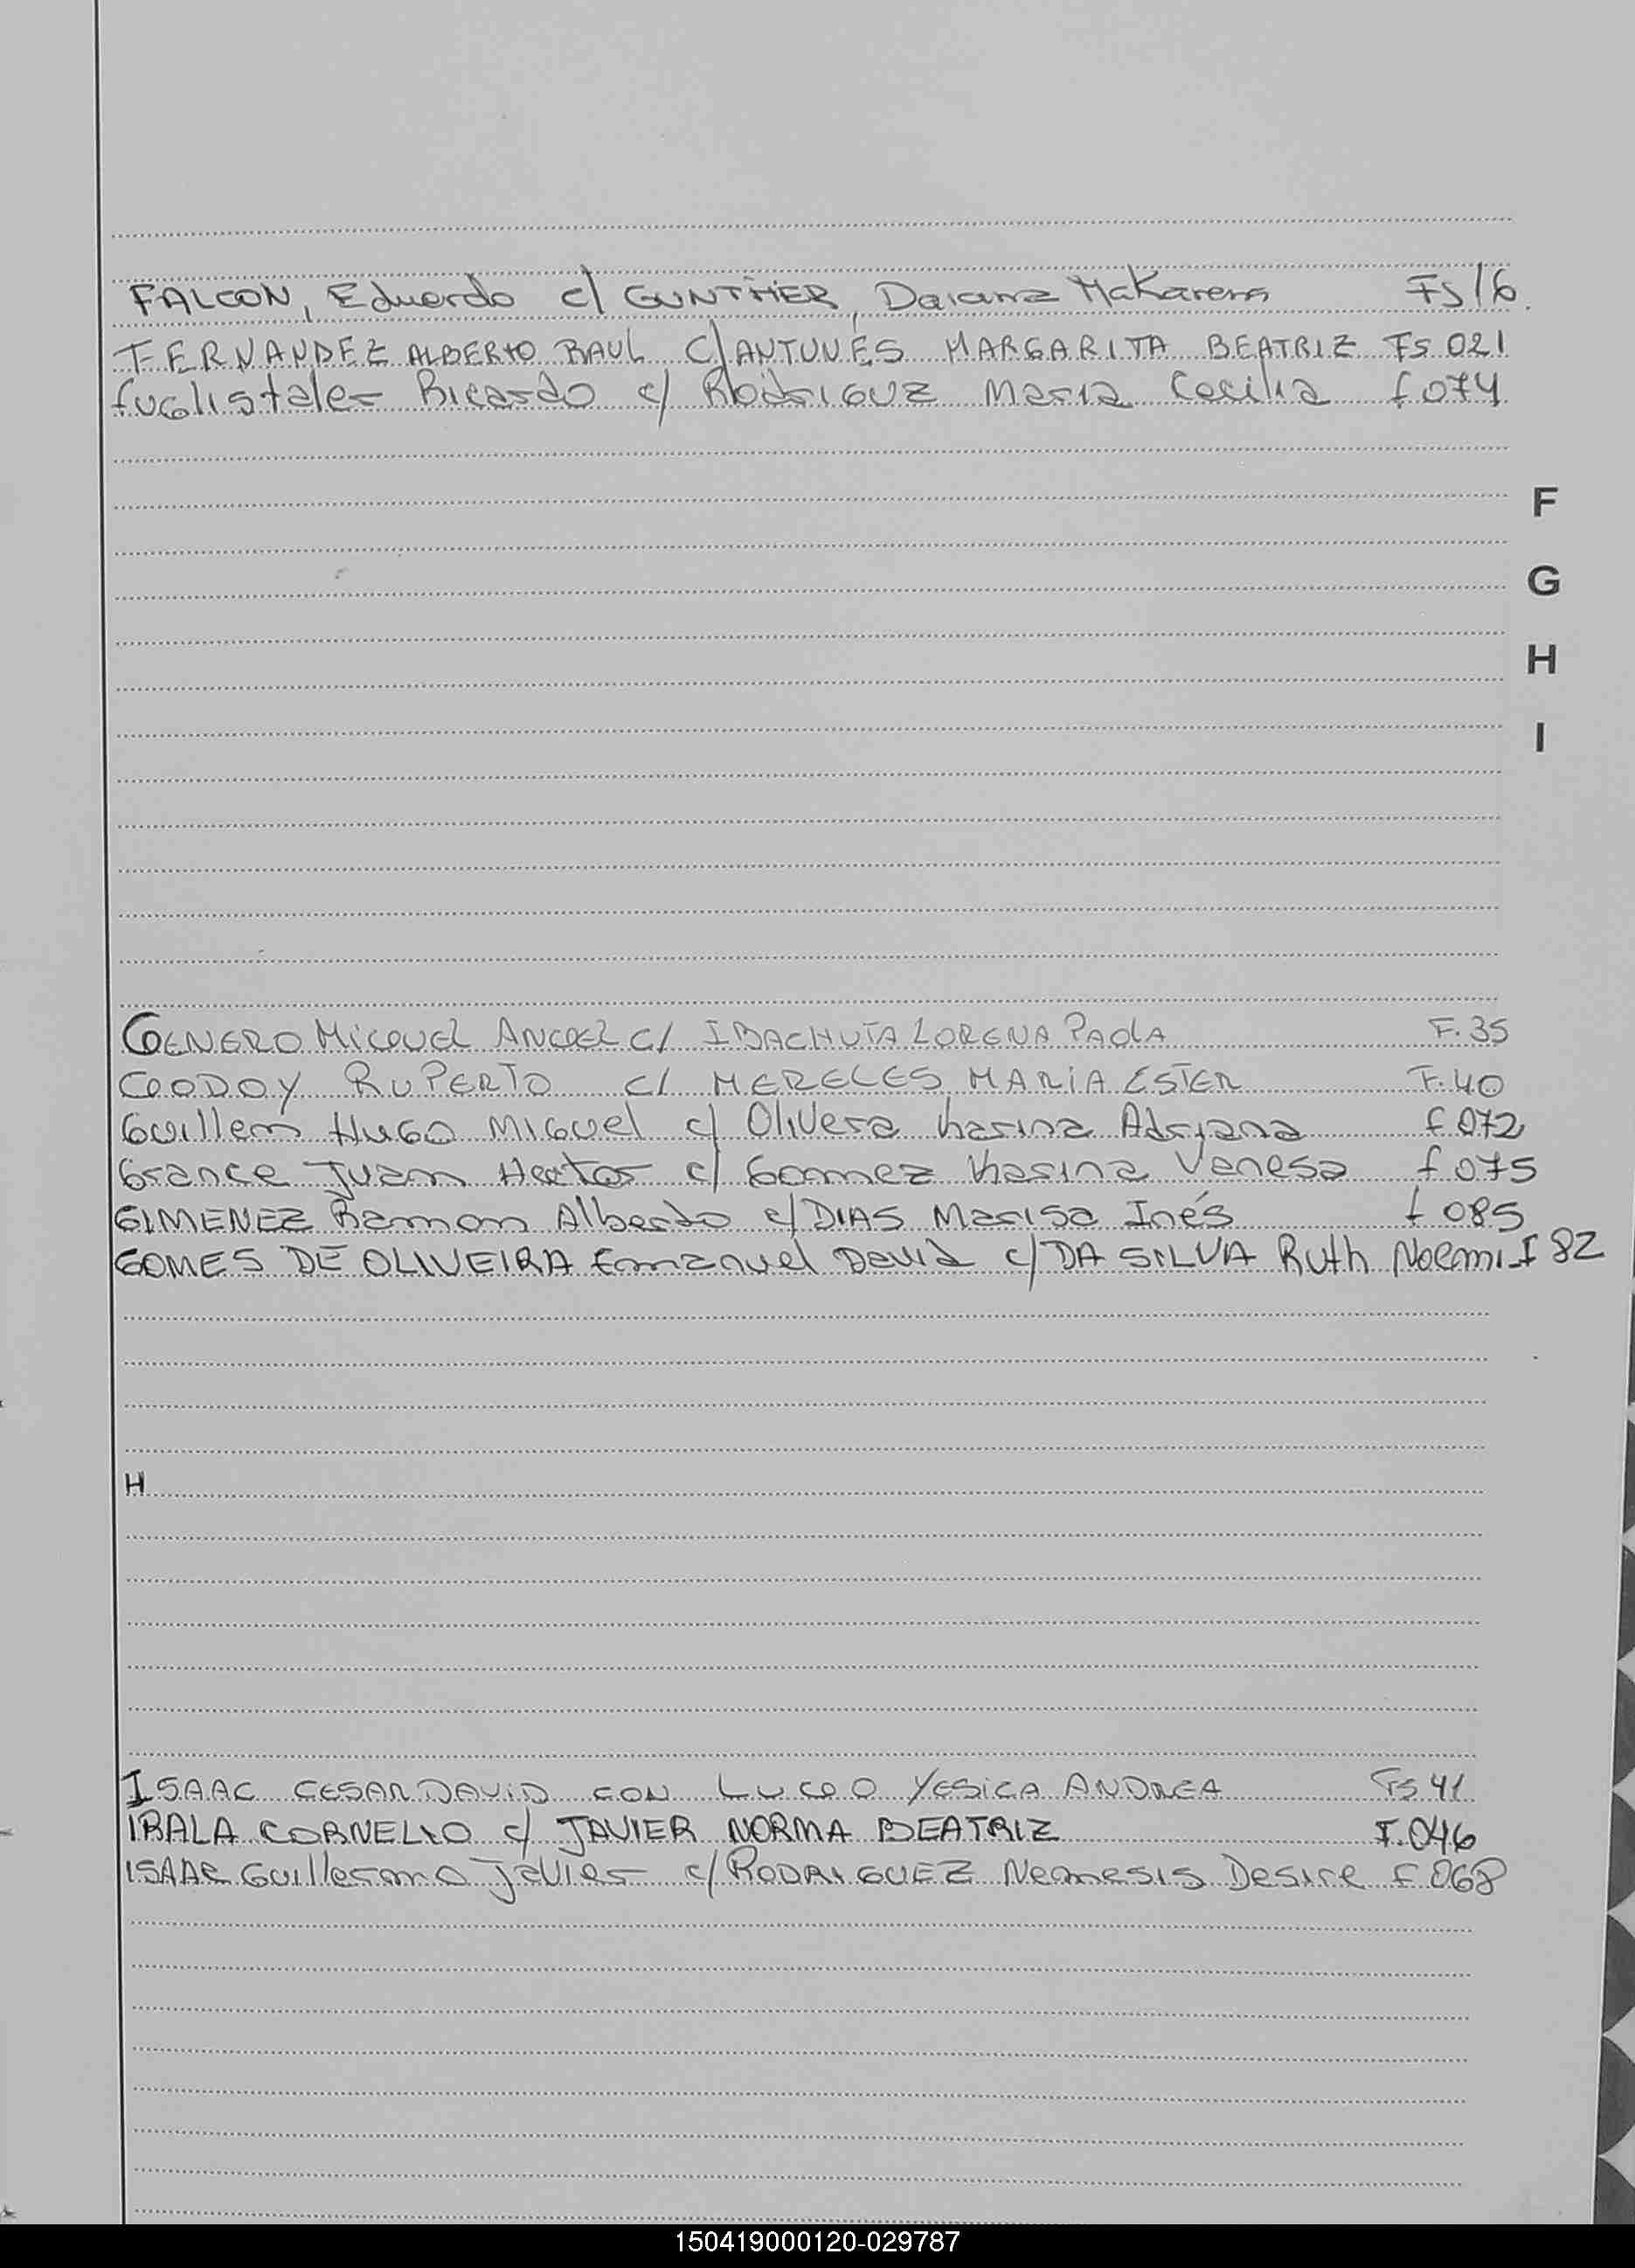 FALCON, Eduardo c/ GUNTHER, Daiana Makarena Fs 16.
FERNANDEZ ALBERTO RAUL C/ANTUNES MARGARITA BEATRIZ Fs 021
fuglistaler Ricardo c/ Rodriguz Maria Cecilia f 074
F
G
H
I
GENERO MIGUEL ANGEL c/ IBACHUTA LORENA PAOLA F. 35
GODOY RUPERTO c/ MERELES MARIA ESTER F. 40
Guillem HUGO MIGuel c/ Olivera karina Adriana f 072
Grance Juan Hector c/ Gomez karina Vanesa f 075
GIMENEZ Ramon Alberto c/ DIAS Marisa Inés f 085
GOMES DE OLIVEIRA Emanuel David c/ DA SILVA Ruth Noemi f 82
H
ISAAC CESAR DAVID CON LUGO YESICA ANDREA Fs 41
IRALA CORNELIO c/ JAVIER NORMA BEATRIZ F. 046
ISAAC Guillermo Javier c/ RODRIGUEZ Nemesis Desire f 068
150419000120-029787